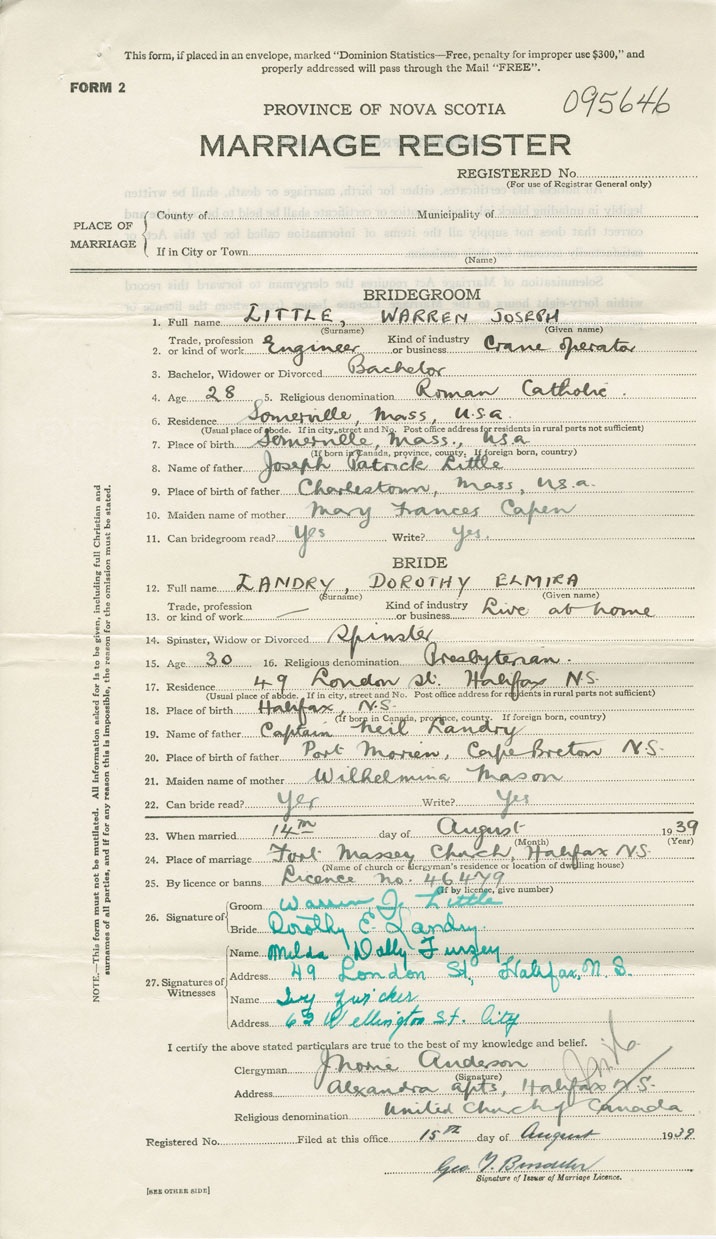 This form, if placed in an envelope, marked "Dominion Statistics—Free, penalty for improper use $300," and
properly addressed will pass through the Mail "FREE".
FORM 2
095646
PROVINCE OF NOVA SCOTIA
MARRIAGE REGISTER
REGISTERED No.
(For use of Registrar General only)
PLACE OF MARRIAGE
County of Municipality of
If in City or Town
(Name)
BRIDEGROOM
1. Full name LITTLE, WARREN JOSEPH
(Surname) (Given name)
2. Trade, profession or kind of work Engineer Kind of industry or business Crane operator
3. Bachelor, Widower or Divorced Bachelor
4. Age 28 5. Religious denomination Roman Catholic.
6. Residence Somerville, Mass, U.S.A.
(Usual place of abode. If in city, street and No. Post office address for residents in rural parts not sufficient)
7. Place of birth Somerville, Mass., USA
(If born in Canada, province, county. If foreign born, country)
8. Name of father Joseph Patrick Little
9. Place of birth of father Charlestown, Mass, U.S.A.
10. Maiden name of mother Mary Frances Capen
11. Can bridegroom read? Yes Write? Yes.
BRIDE
12. Full name LANDRY, DOROTHY ELMIRA
(Surname) (Given name)
13. Trade, profession or kind of work — Kind of industry or business Live at home
14. Spinster, Widow or Divorced Spinster
15. Age 30 16. Religious denomination Presbyterian.
17. Residence 49 London St. Halifax N.S.
(Usual place of abode. If in city, street and No. Post office address for residents in rural parts not sufficient)
18. Place of birth Halifax, N.S.
(If born in Canada, province, county. If foreign born, country)
19. Name of father Captain Neil Landry
20. Place of birth of father Port Morien, Cape Breton N.S.
21. Maiden name of mother Wilhelmina Mason
22. Can bride read? Yes Write? Yes
23. When married 14th day of August 1939
(Month) (Year)
24. Place of marriage Fort Massey Church, Halifax N.S.
(Name of church or clergyman's residence or location of dwelling house)
25. By licence or banns Licence No. 46479
(If by license, give number)
26. Signature of
Groom Warren J. Little
Bride Dorothy E. Landry
27. Signatures of Witnesses
Name Milda Dally Fursey
Address 49 London St., Halifax, N.S.
Name Ivy Zwicker
Address 63 Wellington St. City
I certify the above stated particulars are true to the best of my knowledge and belief.
Clergyman Anderson
(Signature)
Address Alexandra Apts, Halifax N.S.
Religious denomination United Church of Canada
Registered No. Filed at this office 15th day of August 1939
Geo.
Signature of Issuer of Marriage Licence.
[SEE OTHER SIDE]
NOTE.—This form must not be mutilated. All information asked for is to be given, including full Christian and
surnames of all parties, and if for any reason this is impossible, the reason for the omission must be stated.